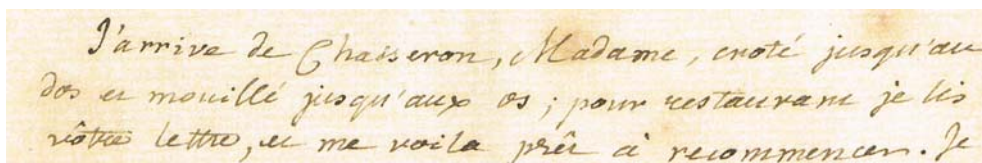 J'arrive de Chasseron, Madame, croté jusqu'au
dos et mouillé jusqu'aux os ; pour restaurant je lis
vôtre lettre, et me voila prêt à recommencer. Je